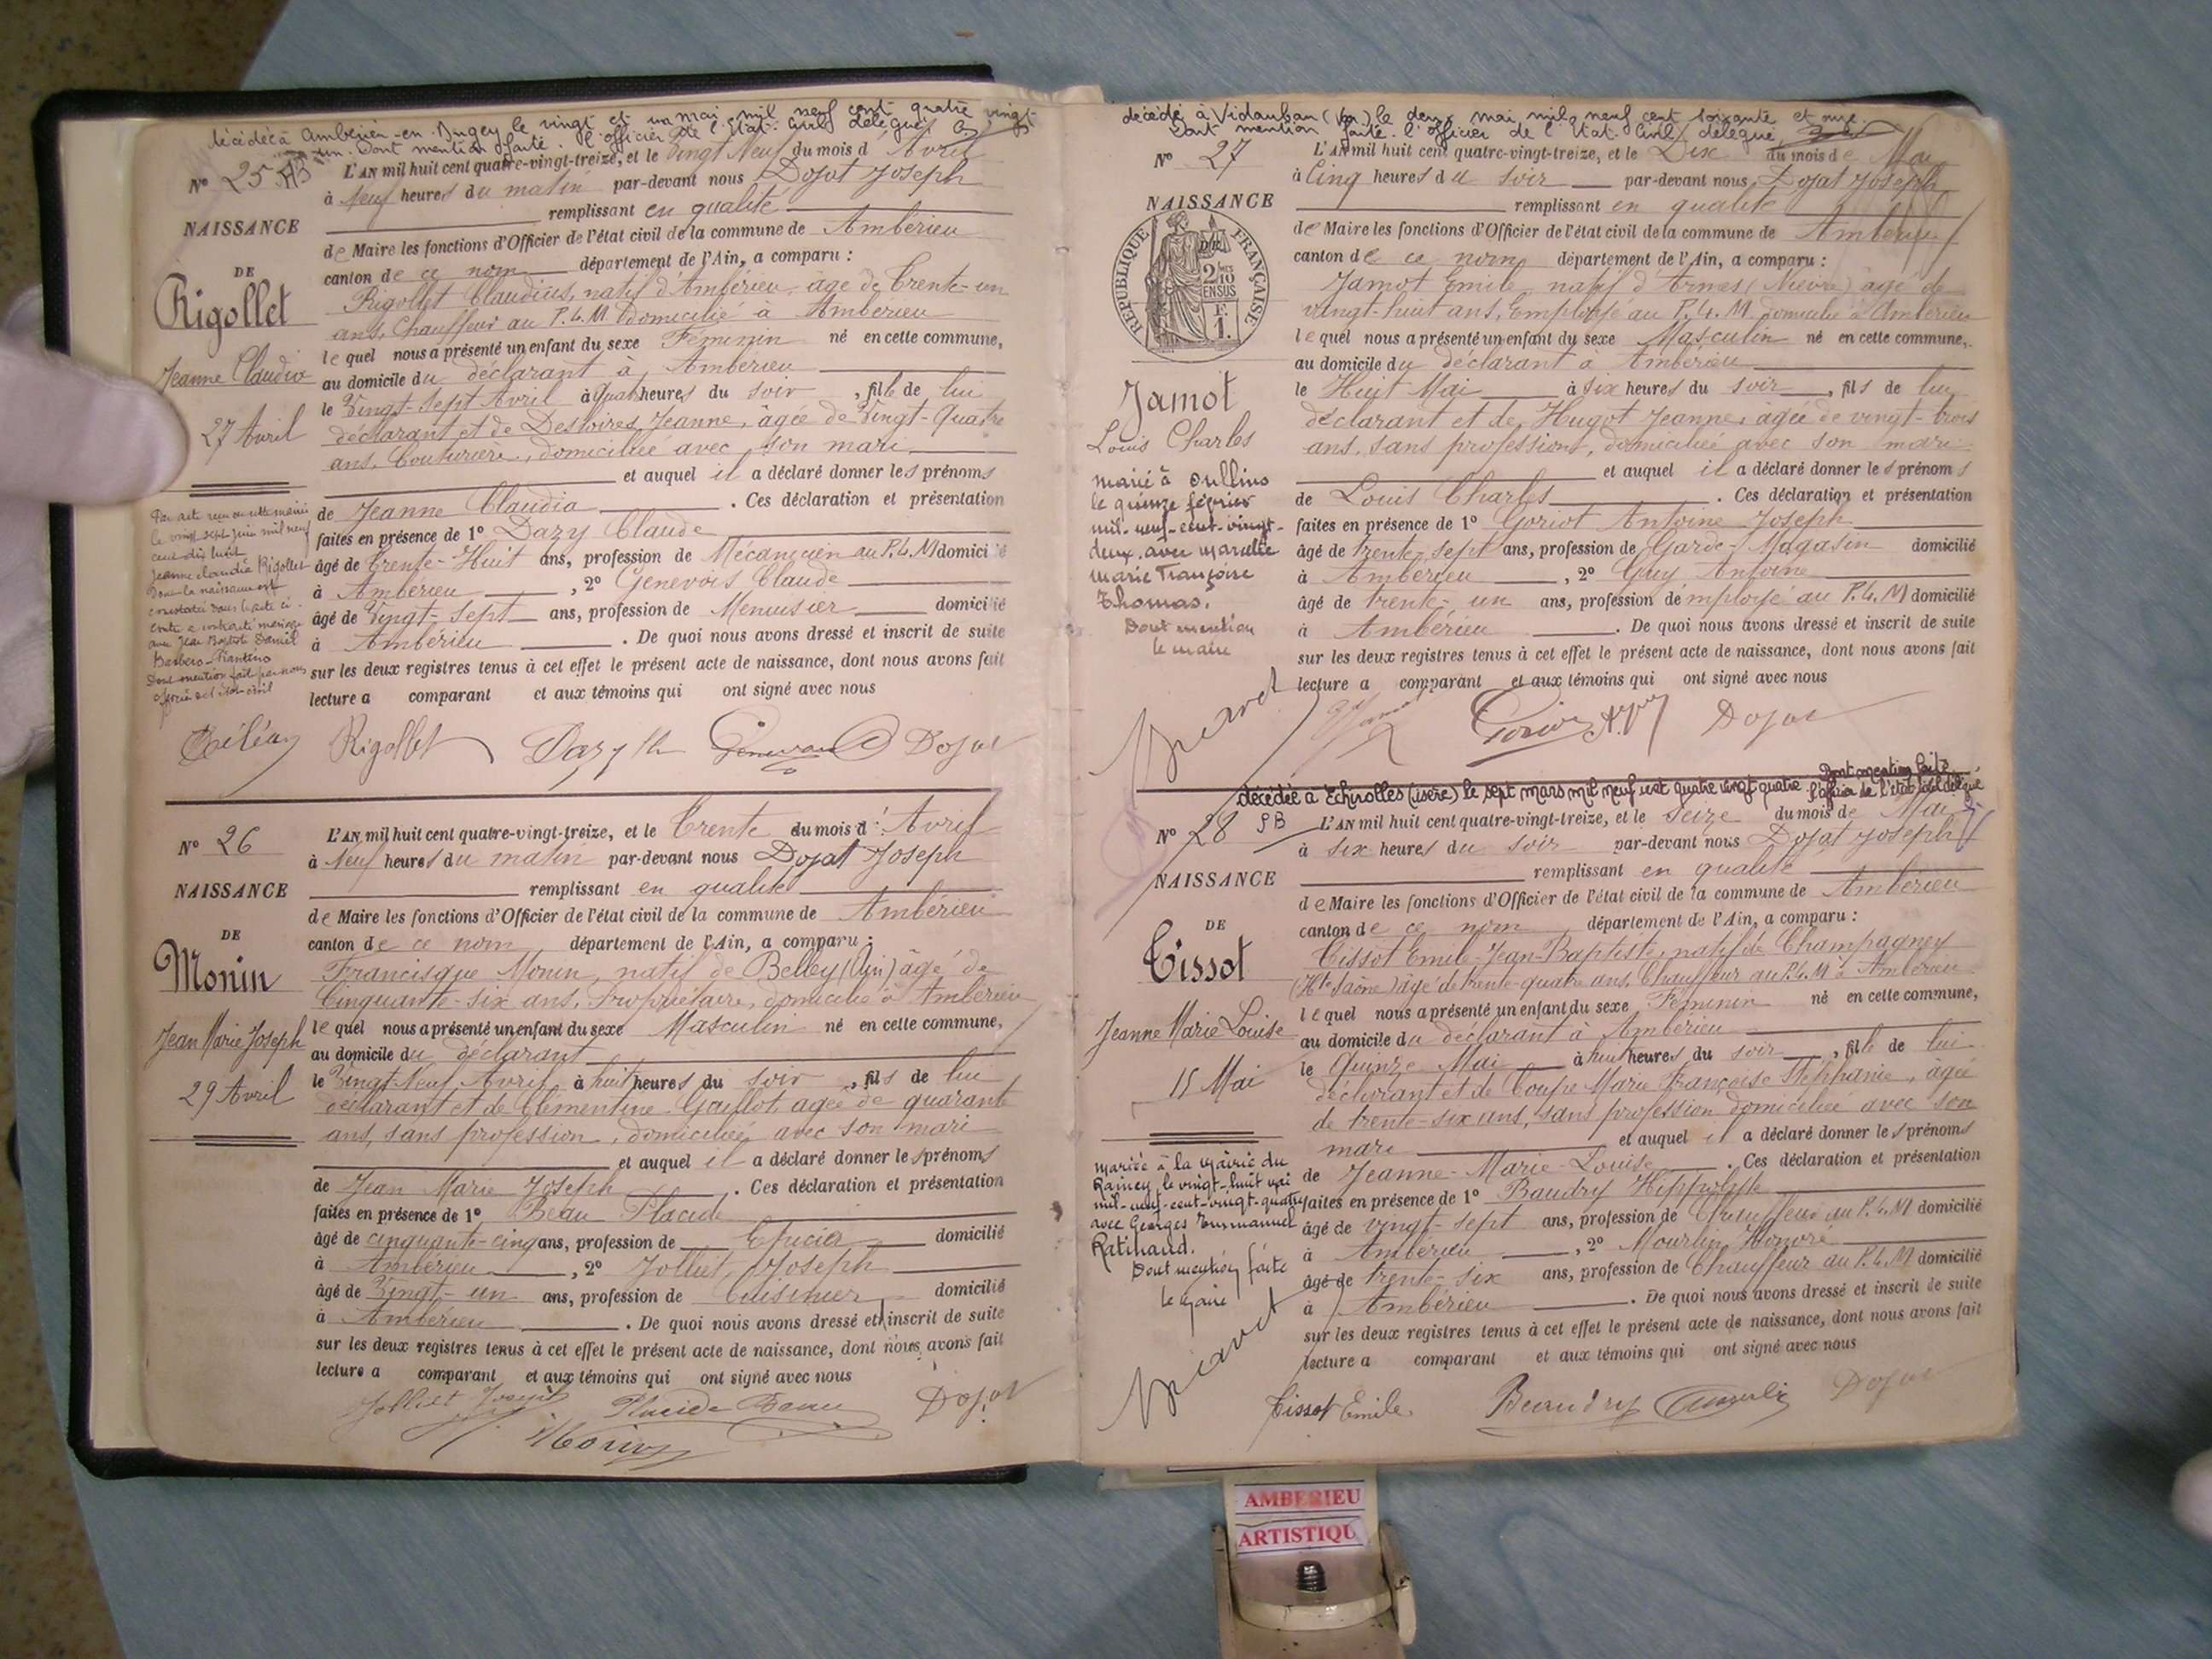 décédée à Ambérieu-en-Bugey le vingt et un mai mil neuf cent quatre vingt
un. Dont mention faite. L'officier de l'Etat-Civil délégué
N° 25
L'AN mil huit cent quatre-vingt-treize, et le Vingt Neuf du mois d'Avril
à Neuf heures du matin par-devant nous Dojat Joseph
remplissant en qualité
NAISSANCE
de Maire les fonctions d'Officier de l'état civil de la commune de Ambérieu
DE
canton de ce nom département de l'Ain, a comparu :
Rigollet
Rigollet Claudius, natif d'Ambérieu, âgé de trente-un
ans, Chauffeur au P.L.M domicilié à Ambérieu
lequel nous a présenté un enfant du sexe Féminin né en cette commune,
Jeanne Claudia
au domicile du déclarant à Ambérieu
le Vingt-Sept Avril à quatre heures du soir, fille de lui
27 Avril
déclarant et de Desloires Jeanne, âgée de vingt-quatre
ans, Couturière, domiciliée avec son mari
et auquel il a déclaré donner les prénoms
de Jeanne Claudia. Ces déclaration et présentation
faites en présence de 1° Dazy Claude
âgé de Trente-Huit ans, profession de Mécanicien au P.L.M domicilié
à Ambérieu, 2° Genevois Claude
âgé de Vingt-Sept ans, profession de Menuisier domicilié
à Ambérieu. De quoi nous avons dressé et inscrit de suite
sur les deux registres tenus à cet effet le présent acte de naissance, dont nous avons fait
lecture a comparant et aux témoins qui ont signé avec nous
Par acte reçu en cette mairie
le vingt sept juin mil neuf
cent dix huit
Jeanne Claudia Rigollet
dont la naissance est
constatée dans l'acte ci-
contre a contracté mariage
avec Jean Baptiste Daniel
Barbero-Piantino
Dont mention fait par nous
officier de l'état-civil
Rigollet Dazy Genevois Dojat
N° 26
L'AN mil huit cent quatre-vingt-treize, et le Trente du mois d'Avril
à Neuf heures du matin par-devant nous Dojat Joseph
NAISSANCE
remplissant en qualité
de Maire les fonctions d'Officier de l'état civil de la commune de Ambérieu
DE
canton de ce nom département de l'Ain, a comparu :
Monin
Francisque Monin, natif de Belley (Ain) âgé de
Cinquante-six ans, Propriétaire, domicilié à Ambérieu
Jean Marie Joseph
lequel nous a présenté un enfant du sexe Masculin né en cette commune,
au domicile du déclarant
le Vingt-Neuf Avril à huit heures du soir, fils de lui
29 Avril
déclarant et de Clémentine Goullot agée de quarante
ans, sans profession, domiciliée avec son mari
et auquel il a déclaré donner les prénoms
de Jean Marie Joseph. Ces déclaration et présentation
faites en présence de 1° Beau Placide
âgé de cinquante-cinq ans, profession de Epicier domicilié
à Ambérieu, 2° Jolliet Joseph
âgé de Vingt-un ans, profession de Cuisinier domicilié
à Ambérieu. De quoi nous avons dressé et inscrit de suite
sur les deux registres tenus à cet effet le présent acte de naissance, dont nous avons fait
lecture a comparant et aux témoins qui ont signé avec nous
Jolliet Joseph Placide Beau Dojat
Monin
décédé à Vidauban (Var) le deux mai mil neuf cent soixante et une
Dont mention faite. L'officier de l'Etat-Civil délégué
N° 27
L'AN mil huit cent quatre-vingt-treize, et le Dix du mois de Mai
à Cinq heures du soir par-devant nous Dojat Joseph
NAISSANCE
remplissant en qualité
RÉPUBLIQUE FRANÇAISE
2/10 EN SUS
F. 1.
de Maire les fonctions d'Officier de l'état civil de la commune de Ambérieu
canton de ce nom département de l'Ain, a comparu :
Jamot Emile, natif d'Armes (Nièvre) âgé de
vingt-huit ans, Employé au P.L.M. domicilié à Ambérieu
lequel nous a présenté un enfant du sexe Masculin né en cette commune,
au domicile du déclarant à Ambérieu
Jamot
le Huit Mai à six heures du soir, fils de lui
déclarant et de Hugot Jeanne, âgée de vingt-trois
Louis Charles
ans, sans profession, domiciliée avec son mari
et auquel il a déclaré donner les prénoms
de Louis Charles. Ces déclaration et présentation
faites en présence de 1° Goriot Antoine Joseph
âgé de trente-sept ans, profession de Garde-Magasin domicilié
à Ambérieu, 2° Guy Antoine
âgé de trente-un ans, profession de mployé au P.L.M domicilié
à Ambérieu. De quoi nous avons dressé et inscrit de suite
sur les deux registres tenus à cet effet le présent acte de naissance, dont nous avons fait
lecture a comparant et aux témoins qui ont signé avec nous
marié à Oullins
le quinze février
mil-neuf-cent-vingt-
deux, avec Marcelle
Marie Françoise
Thomas.
Dont mention
le maire
Jamot Goriot Dojat
décédée à Echirolles (Isère) le sept mars mil neuf cent quatre vingt quatre. Dont mention faite
l'officier de l'état civil délégué
N° 28
L'AN mil huit cent quatre-vingt-treize, et le Seize du mois de Mai
à six heures du soir par-devant nous Dojat Joseph
NAISSANCE
remplissant en qualité
de Maire les fonctions d'Officier de l'état civil de la commune de Ambérieu
DE
canton de ce nom département de l'Ain, a comparu :
Tissot
Tissot Emile-Jean-Baptiste, natif de Champagney
(Hte Saône) âgé de trente-quatre ans, Chauffeur au P.L.M à Ambérieu
lequel nous a présenté un enfant du sexe Féminin né en cette commune,
Jeanne Marie Louise
au domicile du déclarant à Ambérieu
le Quinze Mai à huit heures du soir, fille de lui
15 Mai
déclarant et de Coupe Marie Françoise Stéphanie, âgée
de trente-six ans, sans profession domiciliée avec son
mari et auquel il a déclaré donner les prénoms
de Jeanne-Marie-Louise. Ces déclaration et présentation
faites en présence de 1° Baudry Hippolyte
âgé de vingt-sept ans, profession de Chauffeur au P.L.M domicilié
à Ambérieu, 2° Mourlin Honoré
âgé de trente-six ans, profession de Chauffeur au P.L.M domicilié
à Ambérieu. De quoi nous avons dressé et inscrit de suite
sur les deux registres tenus à cet effet le présent acte de naissance, dont nous avons fait
lecture a comparant et aux témoins qui ont signé avec nous
mariée à la mairie du
Raincy le vingt-huit mai
mil-neuf-cent-vingt-quatre
avec Georges Emmanuel
Ratinaud.
Dont mention faite
le maire
Tissot Emile Baudry Dojat
AMBERIEU
ARTISTIQU